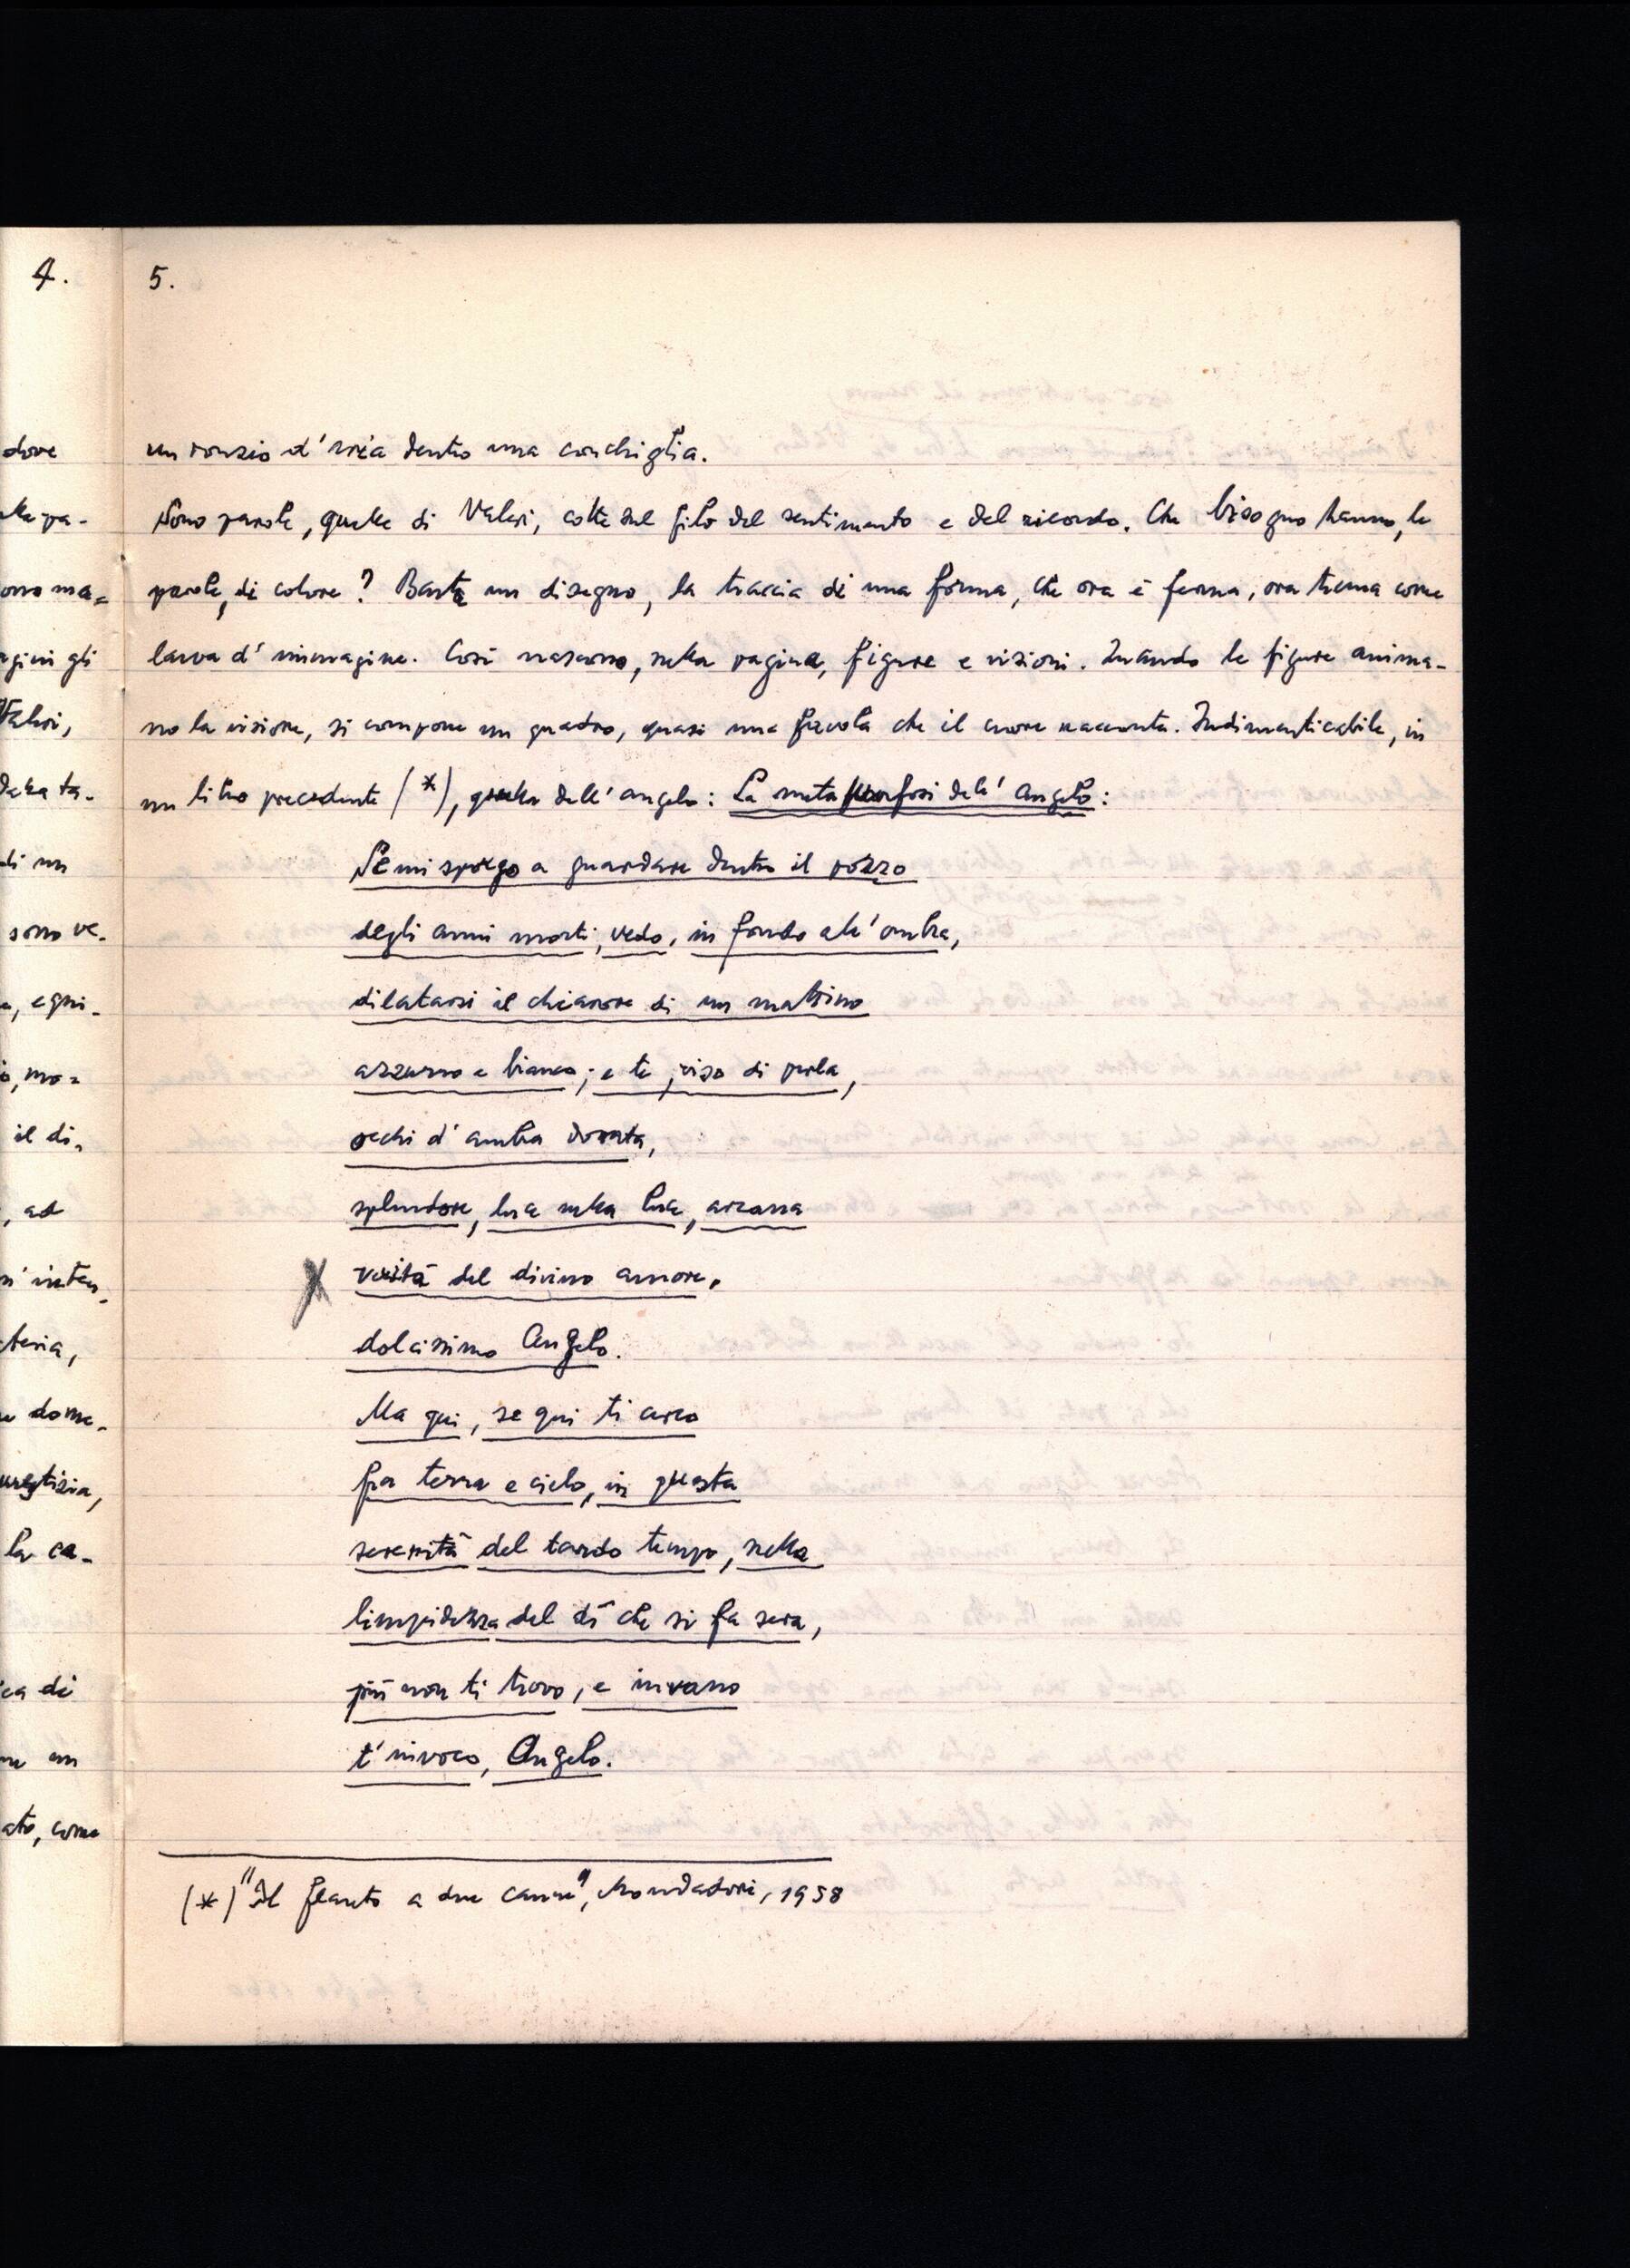 4.
dove
orro ma=
agini gli
Valeri,
della ta-
di un
sono ve-
il di-
, ad
la ca-
un
ato, come
5.
un ronzio d'aria dentro una conchiglia.
Sono parole, quelle di Valeri, colte sul filo del sentimento e del ricordo. Che bisogno hanno, le
parole, di colore? Basta un disegno, la traccia di una forma, che ora è ferma, ora trema come
larva d'immagine. Così nascono, nella pagina, figure e visioni. Quando le figure anima-
no la visione, si compone un quadro, quasi una favola che il cuore racconta. Indimenticabile, in
un libro precedente (*), quella dell'angelo: La metamorfosi dell'angelo:
Se mi sporgo a guardare dentro il pozzo
degli anni morti, vedo, in fondo all'ombra,
dilatarsi il chiarore di un mattino
azzurro e bianco; e te, viso di perla,
occhi d'ambra dorata,
splendore, luce nella luce, arcana
verità del divino amore,
dolcissimo Angelo.
Ma qui, se qui ti cerco
fra terra e cielo, in questa
serenità del tardo tempo, nella
limpidezza del dì che si fa sera,
più non ti trovo, e invano
t'invoco, Angelo.
(*) "Il flauto a due canne", Mondadori, 1958